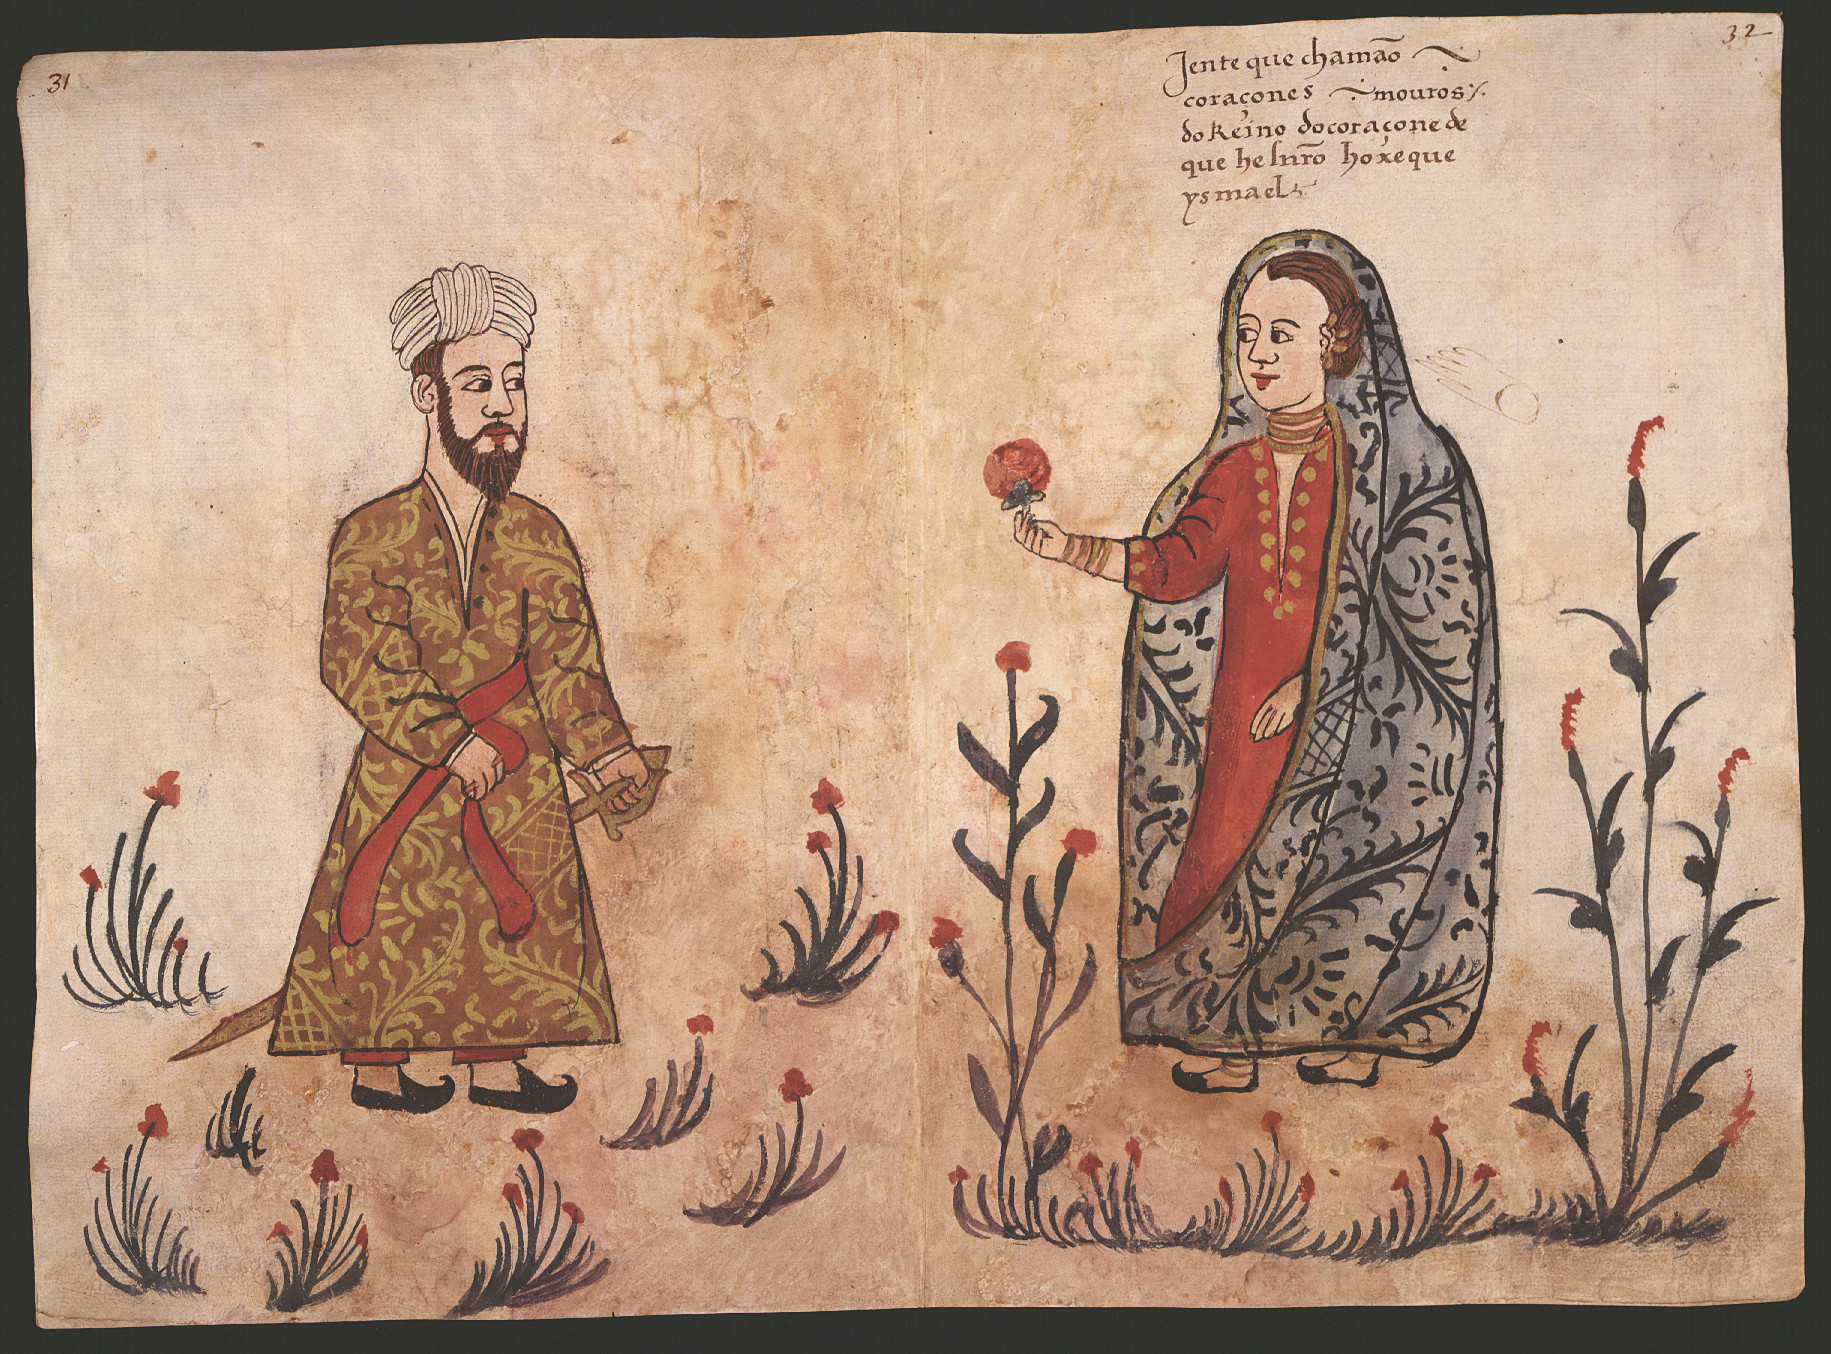 31
32
Jente que chamão
coraçones mouros
do Reino do coraçone de
que he snrõ ho xeque
ysmael